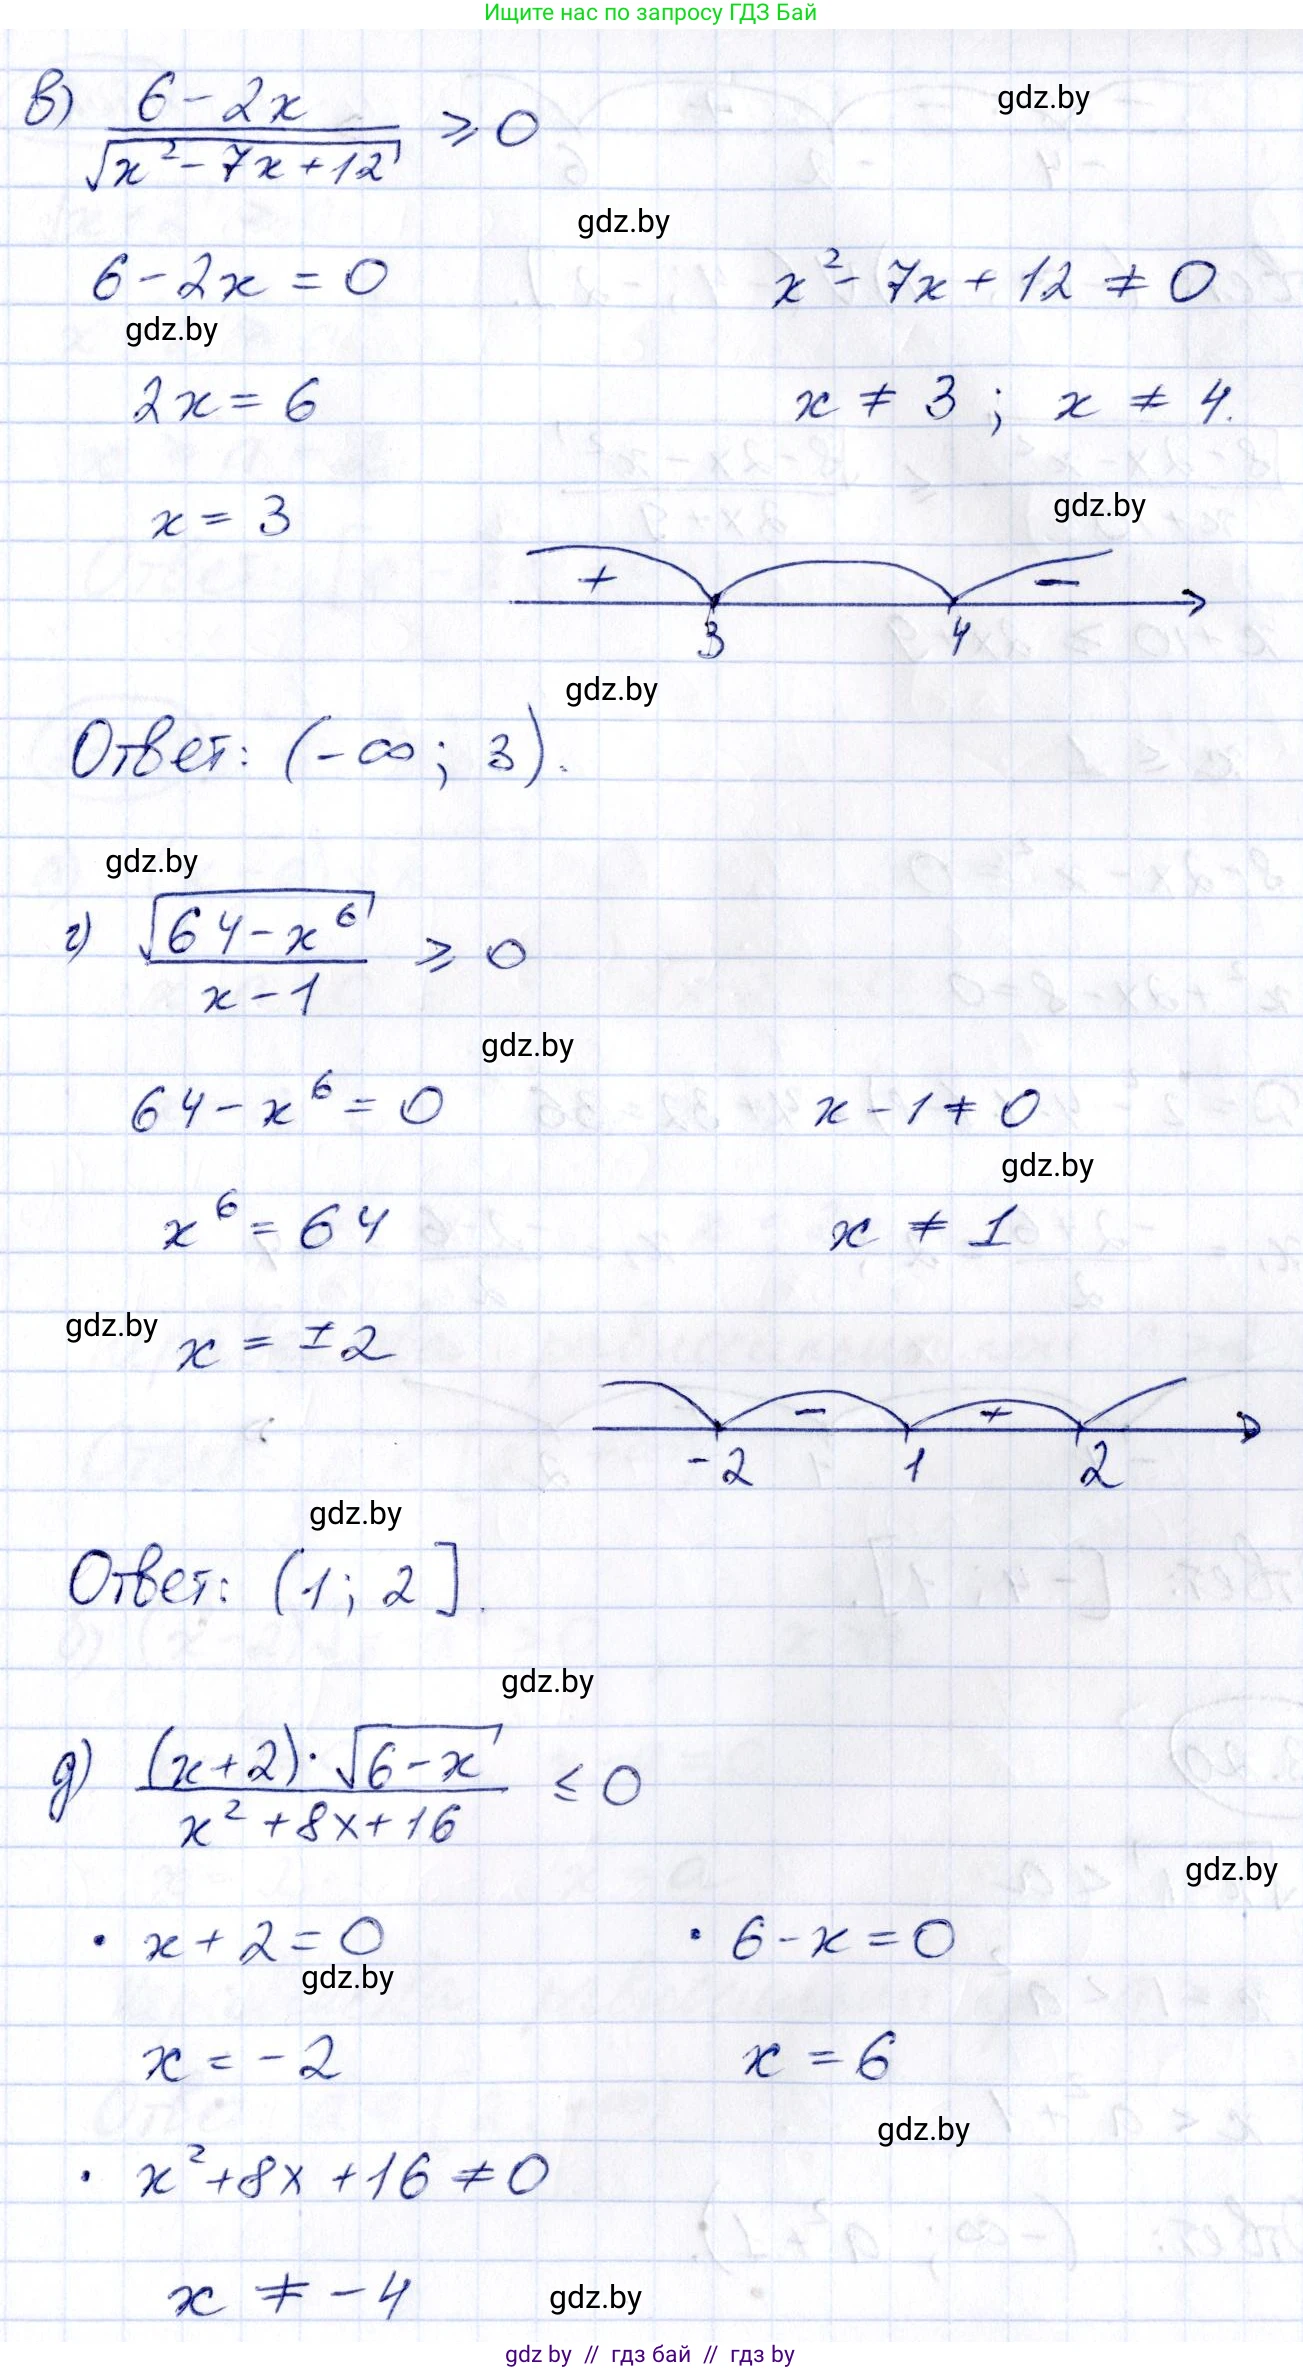 Ищите нас по запросу ГДЗ Бай
в) (6 - 2x) / √(x² - 7x + 12) ⩾ 0
gdz.by
gdz.by
6 - 2x = 0    x² - 7x + 12 ≠ 0
gdz.by
2x = 6    x ≠ 3 ; x ≠ 4.
x = 3
gdz.by
+ −
3 4
gdz.by
Ответ: (-∞; 3).
gdz.by
г) √(64 - x⁶) / (x - 1) ⩾ 0
gdz.by
64 - x⁶ = 0    x - 1 ≠ 0
gdz.by
x⁶ = 64    x ≠ 1
gdz.by
x = ±2
− +
-2 1 2
gdz.by
Ответ: (1; 2].
gdz.by
д) ((x+2)·√(6-x)) / (x² + 8x + 16) ≤ 0
gdz.by
· x + 2 = 0    · 6 - x = 0
gdz.by
x = -2    x = 6
gdz.by
· x² + 8x + 16 ≠ 0
x ≠ -4
gdz.by
gdz by // гдз бай // гдз by